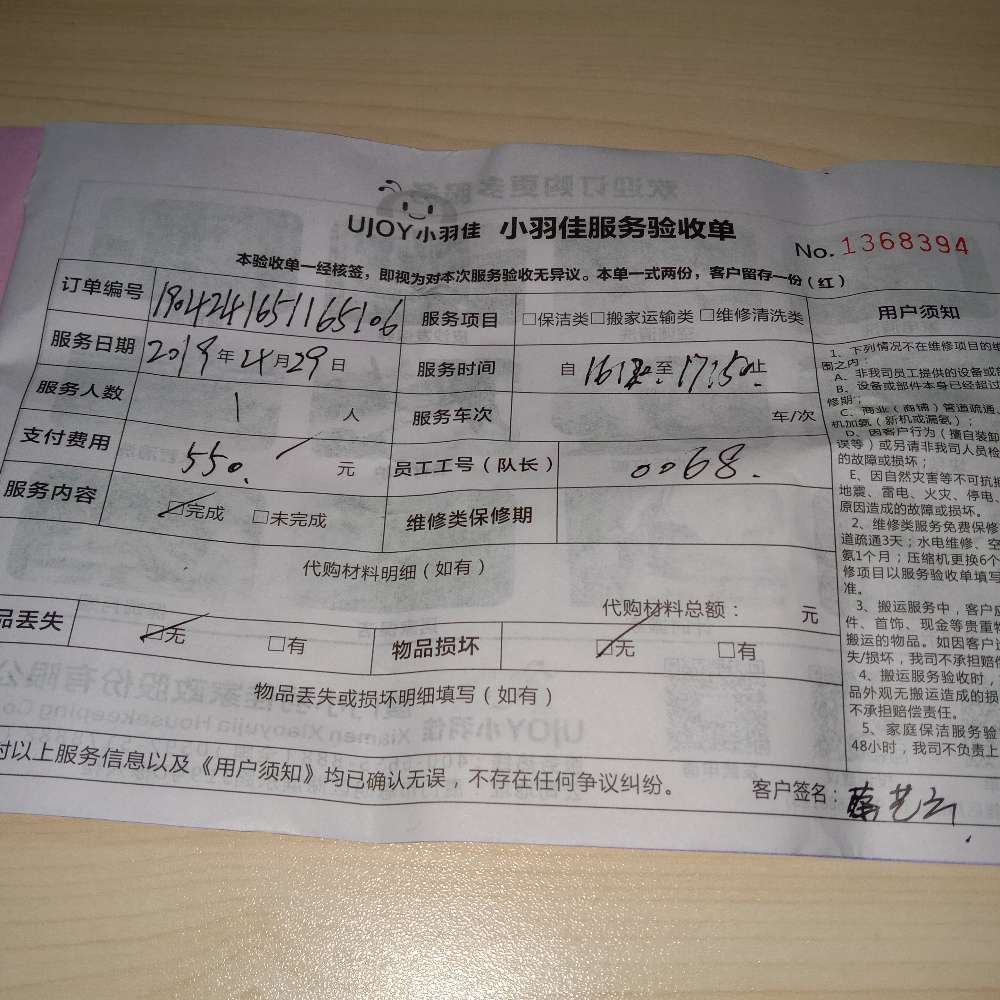 UJOY小羽佳 小羽佳服务验收单
No. 1368394
本验收单一经核签，即视为对本次服务验收无异议。本单一式两份，客户留存一份（红）
订单编号 1904241651165106 服务项目 □保洁类□搬家运输类 □维修清洗类
服务日期 2019年4月29日 服务时间 自 至17:50止
服务人数 1 人 服务车次 车/次
支付费用 550. 元 员工工号（队长） 0068.
服务内容 □完成 □未完成 维修类保修期
代购材料明细（如有）
代购材料总额： 元
品丢失 □无 □有 物品损坏 □无 □有
物品丢失或损坏明细填写（如有）
对以上服务信息以及《用户须知》均已确认无误，不存在任何争议纠纷。
客户签名：
用户须知
1、下列情况不在维修项目的维
围之内：
A、非我司员工提供的设备或
B、设备或部件本身已经超过
修期；
C、商业（商铺）管道疏通、
机加氨（新机或漏氨）；
D、因客户行为（擅自装卸
误等）或另请非我司人员检
的故障或损坏；
E、因自然灾害等不可抗
地震、雷电、火灾、停电、
原因造成的故障或损坏。
2、维修类服务免费保修
道疏通3天；水电维修、空
氨1个月；压缩机更换6个
修项目以服务验收单填写
准。
3、搬运服务中，客户应
件、首饰、现金等贵重物
搬运的物品。如因客户
失/损坏，我司不承担赔偿
4、搬运服务验收时，
品外观无搬运造成的损
不承担赔偿责任。
5、家庭保洁服务验
48小时，我司不负责上